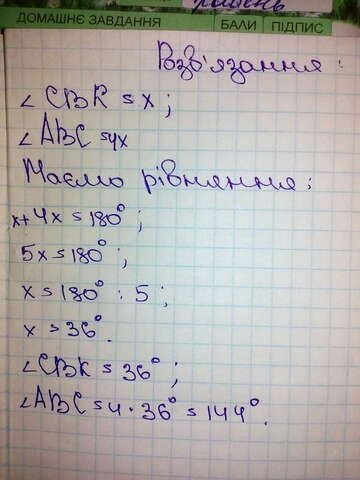 рішень
ДОМАШНЄ ЗАВДАННЯ БАЛИ ПІДПИС
Розв'язання:
∠CBK = x;
∠ABC = 4x
Маємо рівняння:
x + 4x = 180°;
5x = 180°;
x = 180° : 5;
x = 36°.
∠CBK = 36°;
∠ABC = 4 · 36° = 144°.